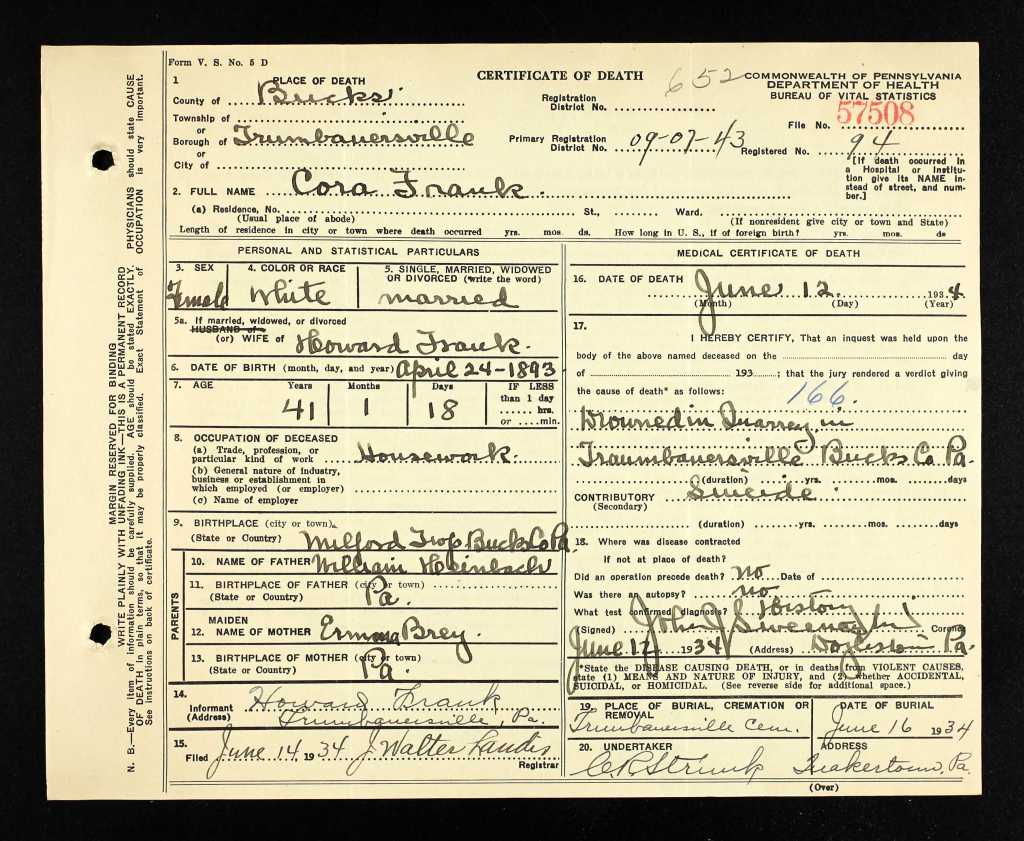 Form V. S. No. 5 D
CERTIFICATE OF DEATH
652
COMMONWEALTH OF PENNSYLVANIA
DEPARTMENT OF HEALTH
BUREAU OF VITAL STATISTICS
1 PLACE OF DEATH
County of Bucks
Township of
or
Borough of Trumbauersville
or
City of
Registration District No.
Primary Registration District No. 09-07-43
File No. 57508
Registered No. 94
[If death occurred in a Hospital or Institution give its NAME instead of street, and number.]
2. FULL NAME Cora Frank
(a) Residence, No. St., Ward.
(Usual place of abode) (If nonresident give city or town and State)
Length of residence in city or town where death occurred yrs. mos. ds. How long in U. S., if of foreign birth? yrs. mos. ds
PERSONAL AND STATISTICAL PARTICULARS
3. SEX
Female
4. COLOR OR RACE
White
5. SINGLE, MARRIED, WIDOWED OR DIVORCED (write the word)
married
5a. If married, widowed, or divorced
HUSBAND of
(or) WIFE of Howard Frank.
6. DATE OF BIRTH (month, day, and year) April 24-1893
7. AGE Years Months Days IF LESS than 1 day
41 1 18 hrs. or min.
8. OCCUPATION OF DECEASED
(a) Trade, profession, or particular kind of work Housework
(b) General nature of industry, business or establishment in which employed (or employer)
(c) Name of employer
9. BIRTHPLACE (city or town)
(State or Country) Milford Twp Bucks Co Pa.
PARENTS
10. NAME OF FATHER William Heinbach
11. BIRTHPLACE OF FATHER (city or town)
(State or Country) Pa.
12. MAIDEN NAME OF MOTHER Brey.
13. BIRTHPLACE OF MOTHER (city or town)
(State or Country) Pa.
14. Informant Howard Frank
(Address) Trumbauersville, Pa.
15. Filed June 14 1934 J. Walter Landis
Registrar
MEDICAL CERTIFICATE OF DEATH
16. DATE OF DEATH June 12 1934
(Month) (Day) (Year)
17. I HEREBY CERTIFY, That an inquest was held upon
the body of the above named deceased on the day
of 193 ; that the jury rendered a verdict giving
the cause of death* as follows: 166.
Drowned in Quarrey in
Traumbauersville Bucks Co Pa.
(duration) yrs. mos. days
CONTRIBUTORY Suicide
(Secondary)
(duration) yrs. mos. days
18. Where was disease contracted
if not at place of death?
Did an operation precede death? no Date of
Was there an autopsy? no
What test confirmed diagnosis? History
(Signed) John J Sweeney Coroner
June 12 1934 (Address) Doylestown Pa.
*State the DISEASE CAUSING DEATH, or in deaths from VIOLENT CAUSES, state (1) MEANS AND NATURE OF INJURY, and (2) whether ACCIDENTAL, SUICIDAL, or HOMICIDAL. (See reverse side for additional space.)
19. PLACE OF BURIAL, CREMATION OR REMOVAL
Trumbauersville Cem.
DATE OF BURIAL
June 16 1934
20. UNDERTAKER
C.R. Strunk
ADDRESS
Quakertown, Pa.
(Over)
MARGIN RESERVED FOR BINDING
WRITE PLAINLY WITH UNFADING INK—THIS IS A PERMANENT RECORD
N. B.—Every item of information should be carefully supplied. AGE should be stated EXACTLY. PHYSICIANS should state CAUSE
OF DEATH in plain terms, so that it may be properly classified. Exact Statement of OCCUPATION is very important.
See instructions on back of certificate.